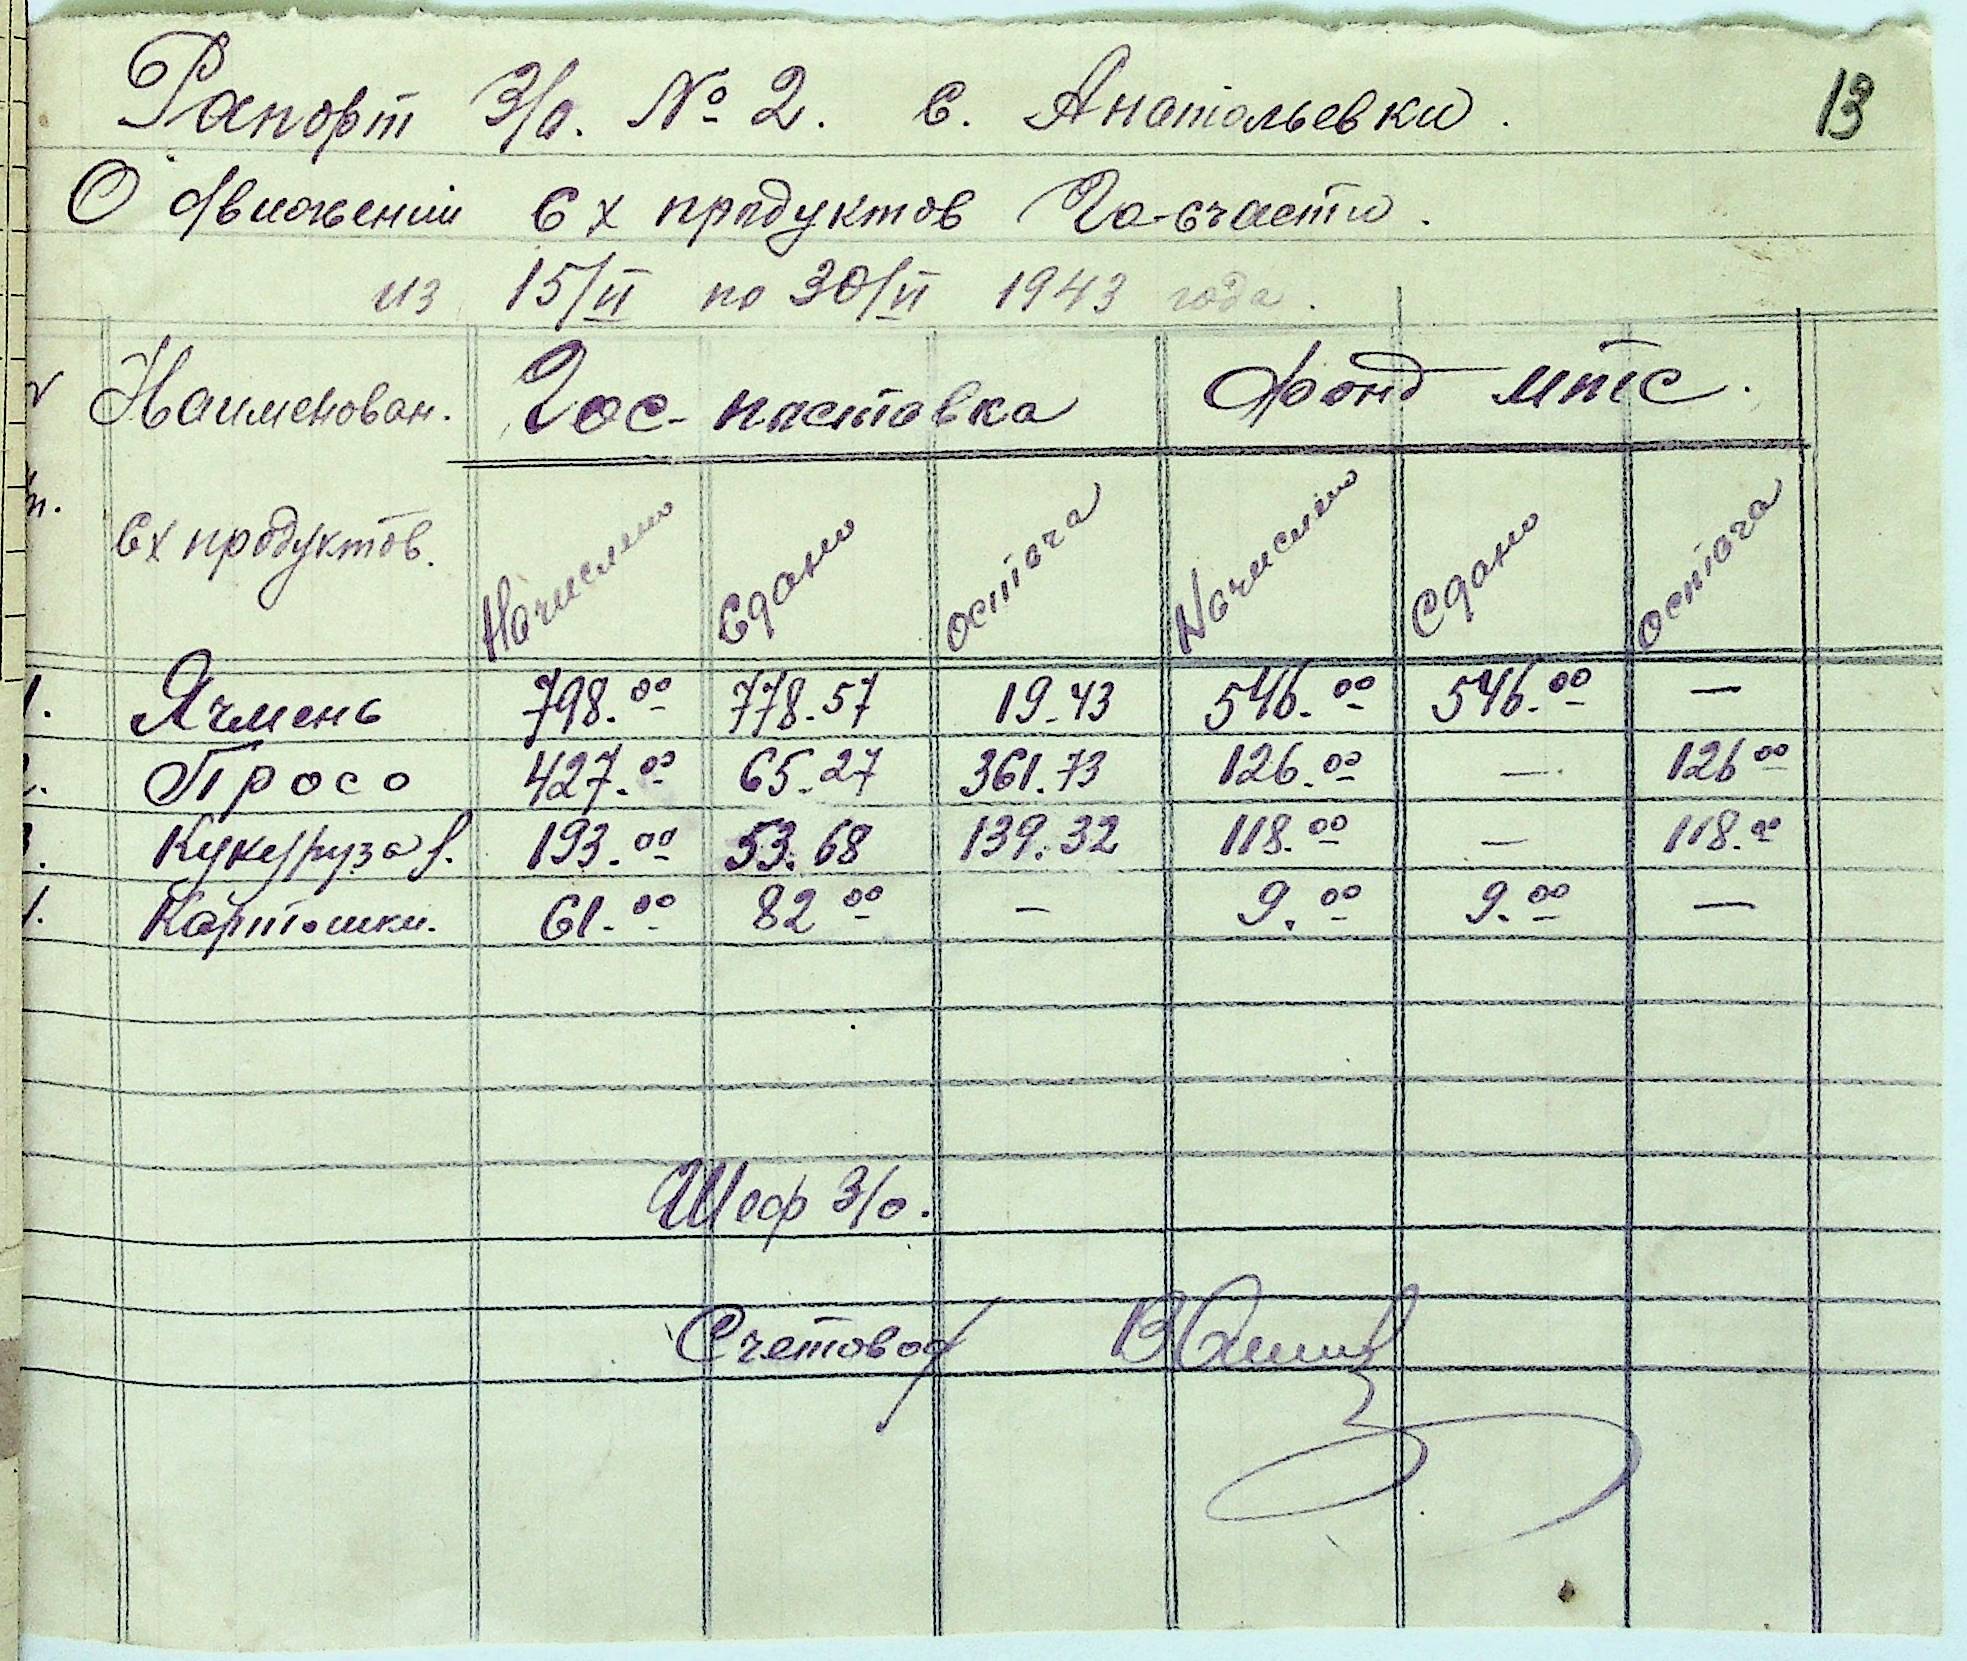 13
Рапорт З/о. № 2. с. Анатольевки.
О движении с х продуктов Го-счасти.
из 15/VI по 30/VI 1943 года.
Наименован. Гос-поставка Фонд мтс.
сх продуктов. Начислено Сдано остача Начислено Сдано остача
1. Ячмень 798.00 778.57 19.43 546.00 546.00 —
2. Просо 427.00 65.27 361.73 126.00 — 126 00
3. Кукуруза 193.00 53.68 139.32 118.00 — 118.00
Картошки. 61.00 82 00 — 9.00 9.00 —
Шеф З/о.
Счетовод